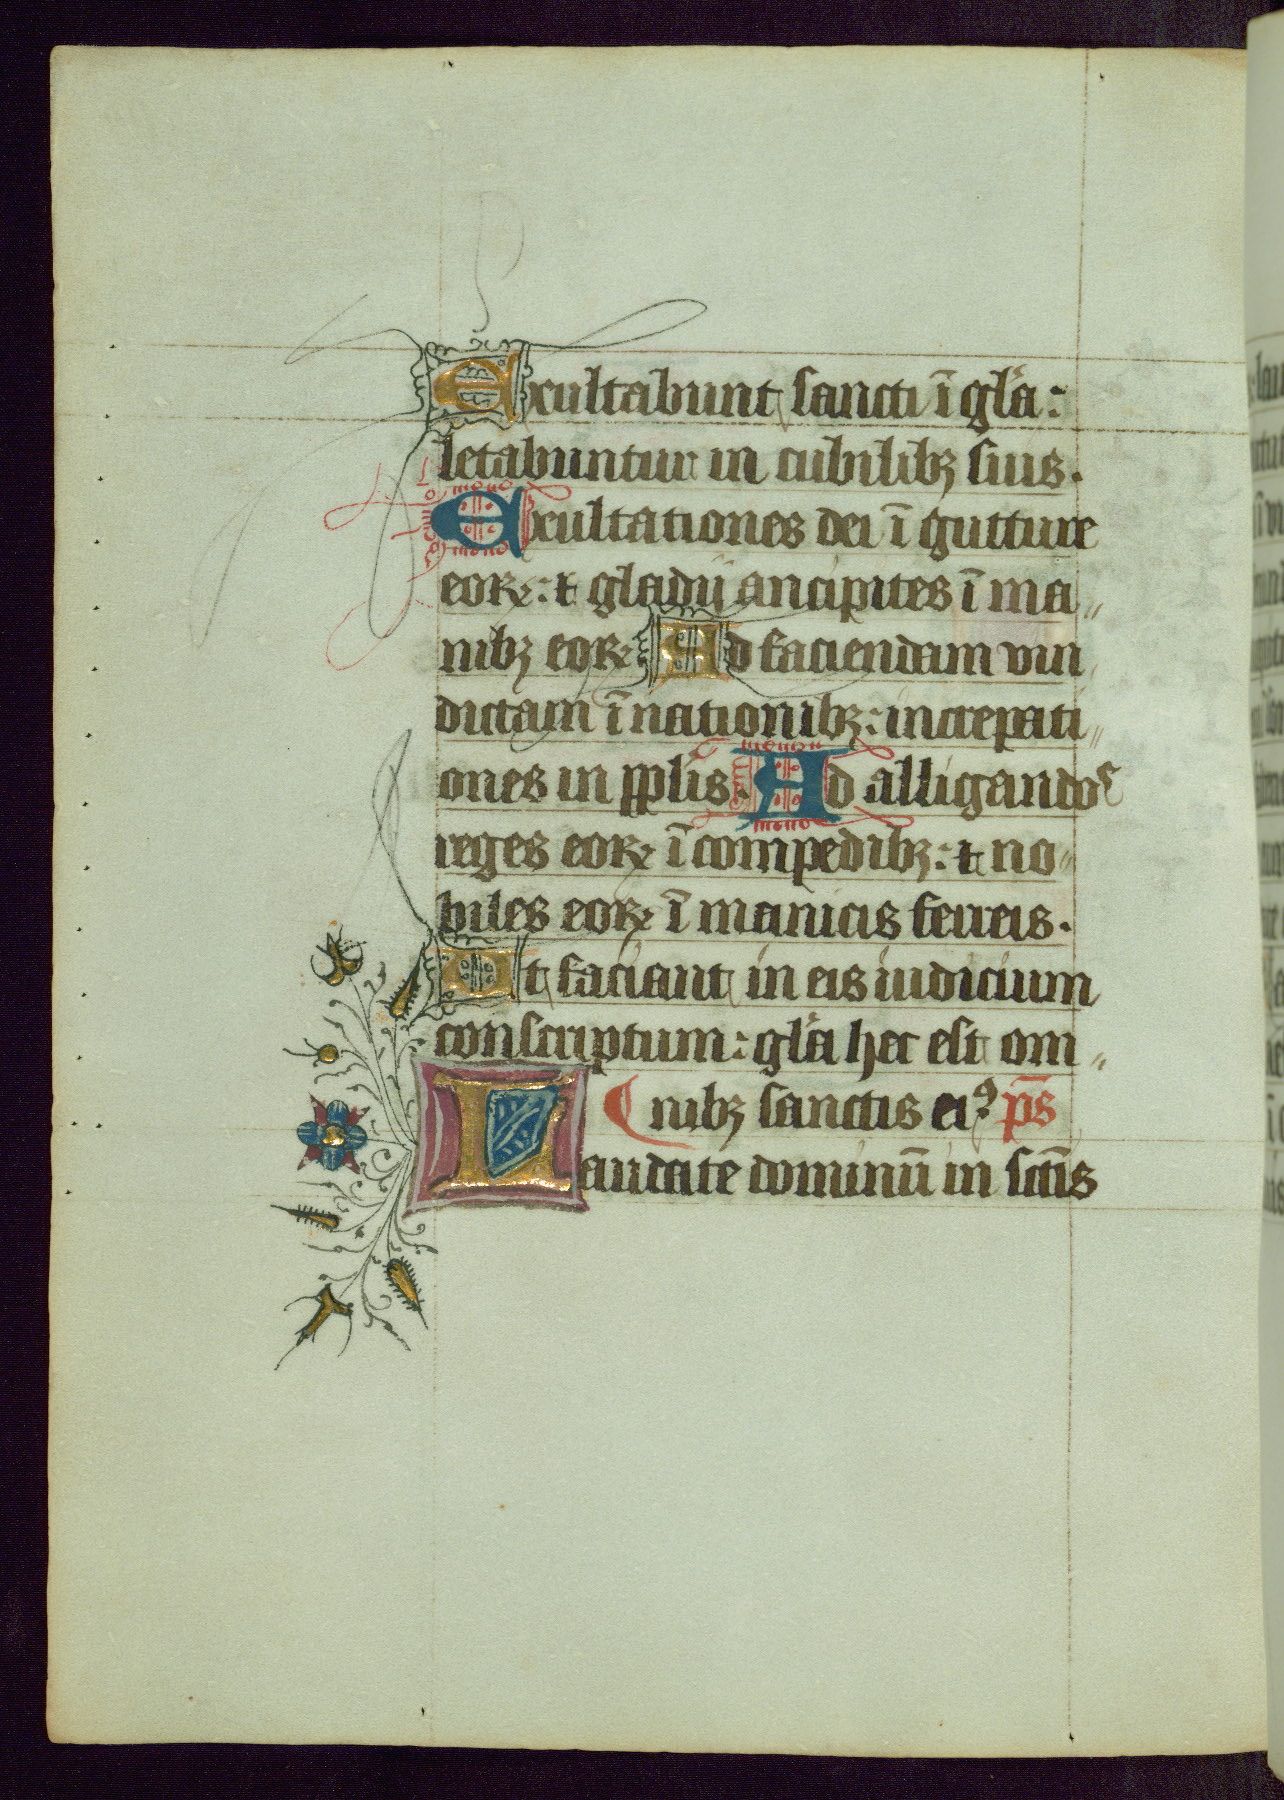 Exultabunt sancti ī glā:
letabuntur in cubilibꝫ suis.
Exultationes dei ī gutture
eoꝝ: ⁊ gladij ancipites ī ma〃
nibꝫ eoꝝ Ad faciendam vin〃
dictam ī nationibꝫ: increpati〃
ones in ppl̄is. Ad alligandos
reges eoꝝ ī compedibꝫ: ⁊ no〃
biles eoꝝ ī manicis ferreis.
Et faciant in eis iudicium
conscriptum: glā hec est om〃
nibꝫ sanctis eiꝰ. p̄s
Laudate dominū in sctī̄s